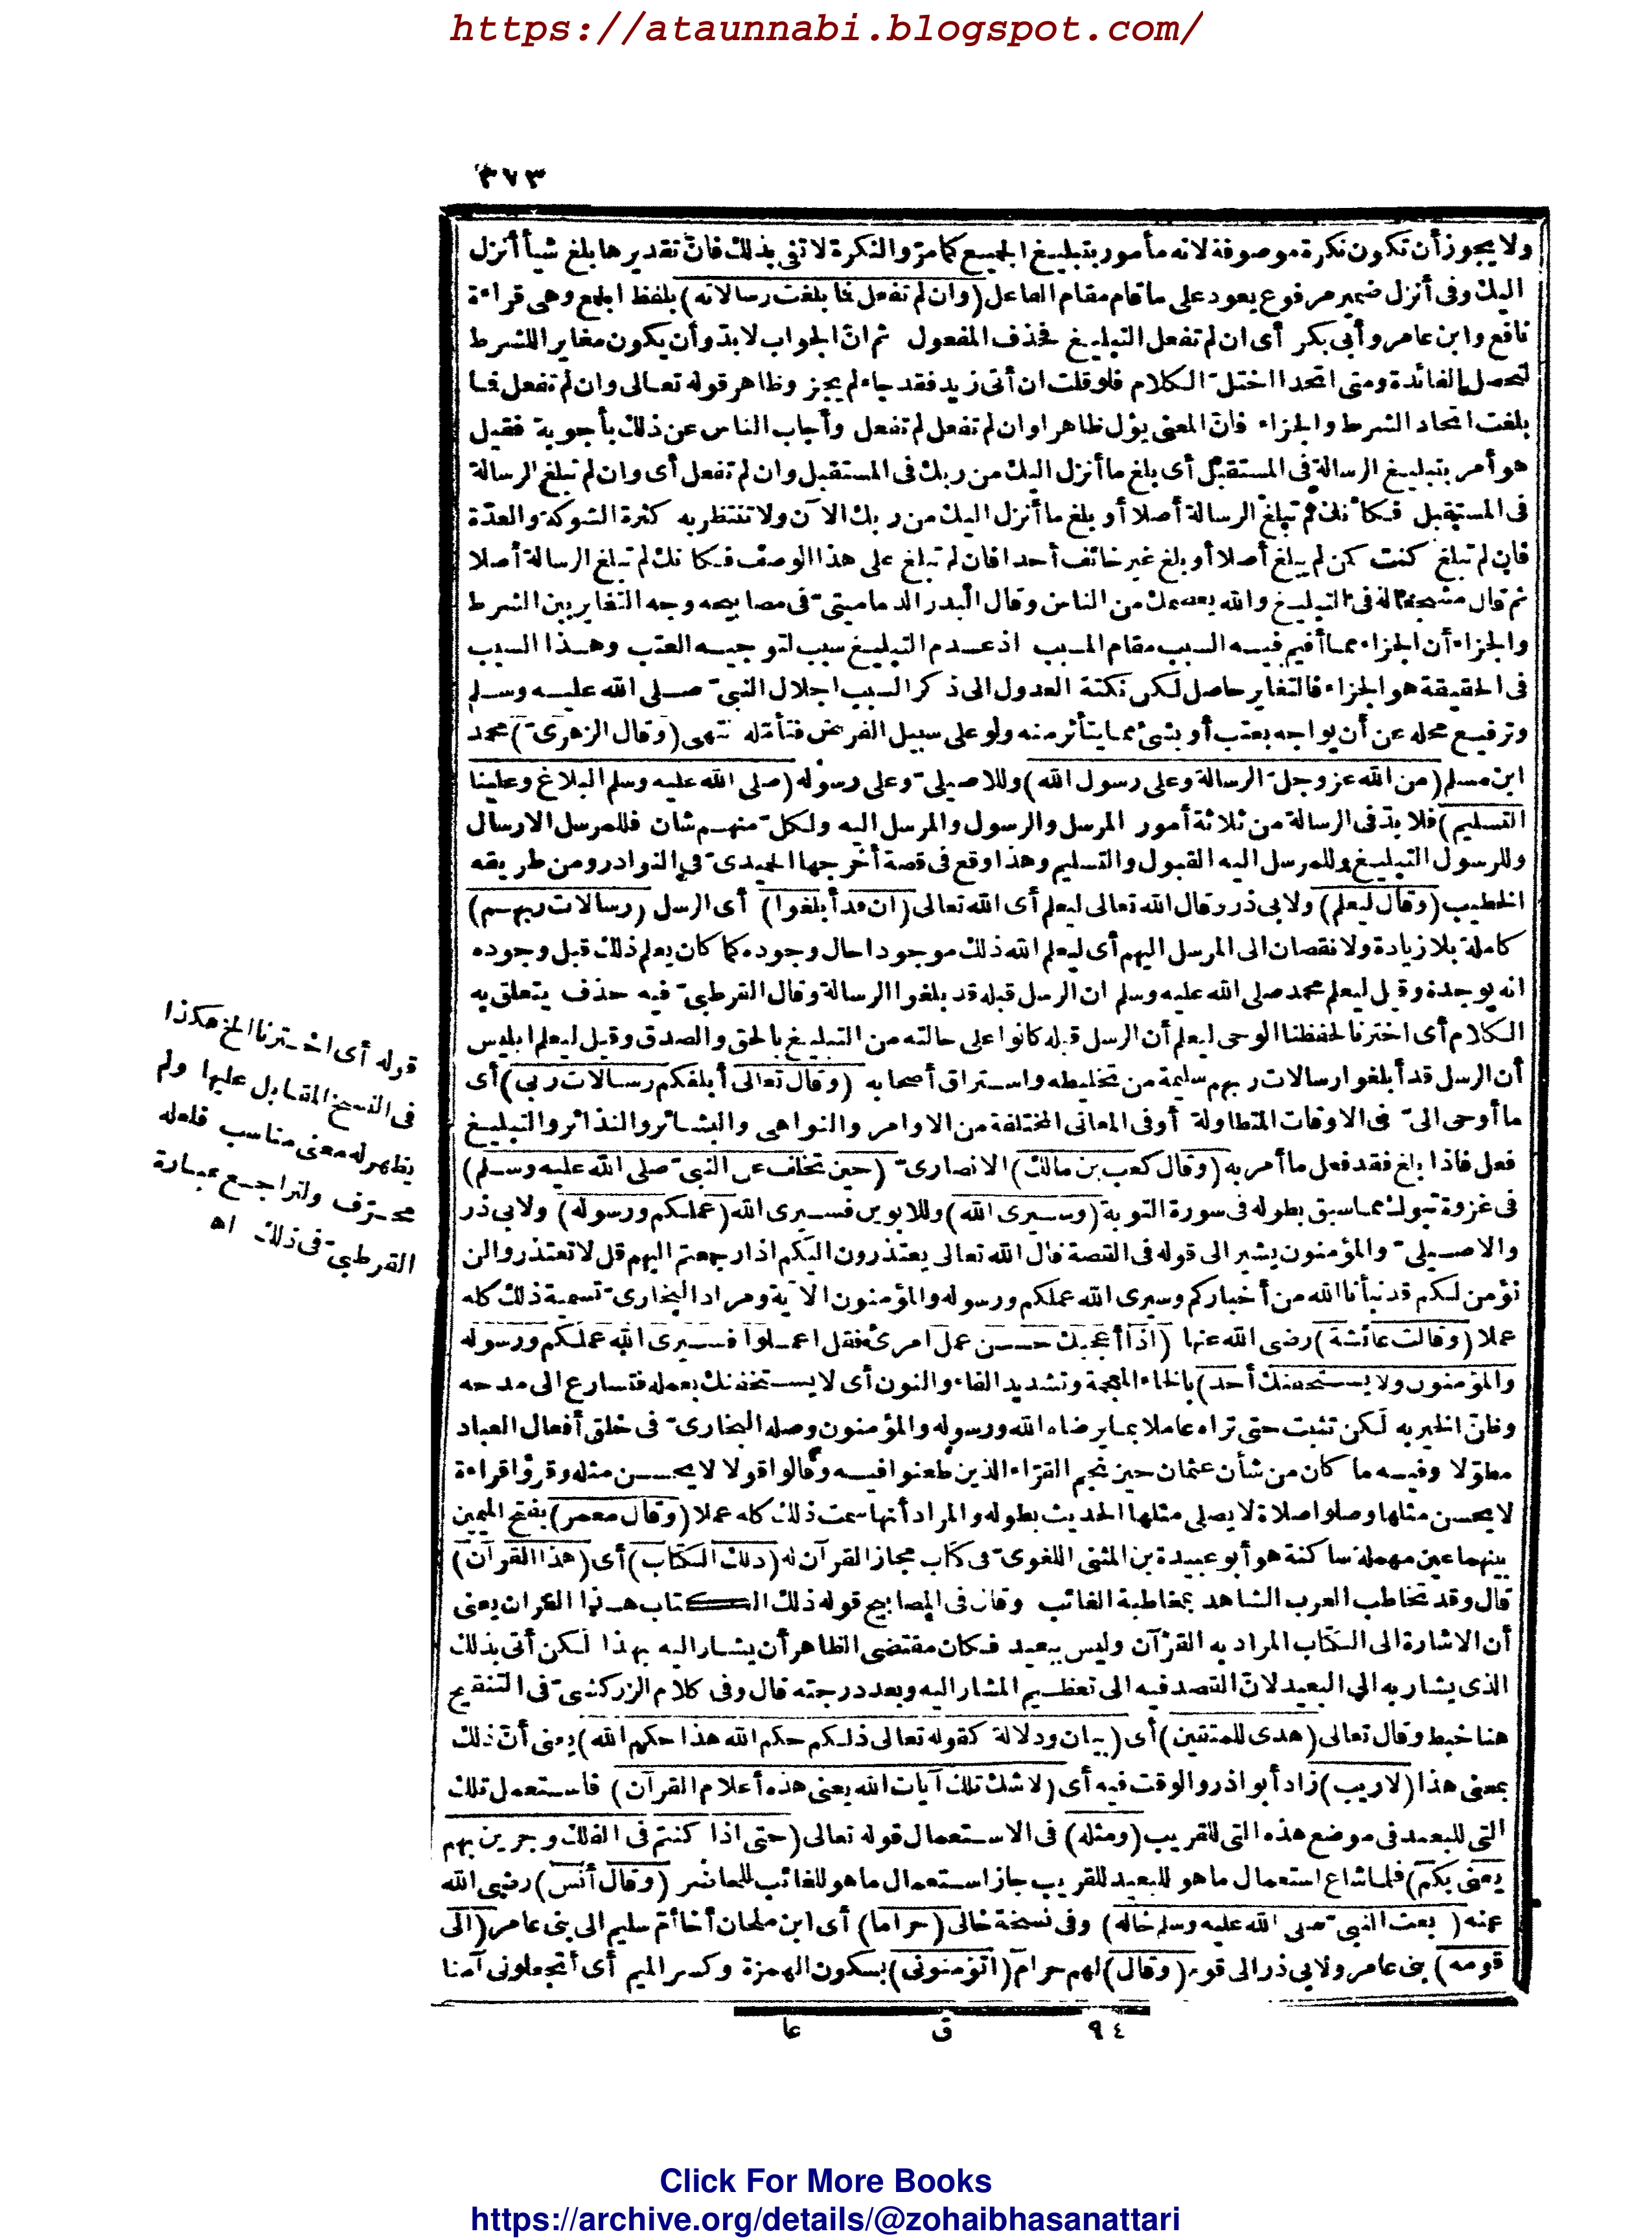 https://ataunnabi.blogspot.com/
٣٧٣
ولا يجوز أن تكون نكرة موصوفة لانه مأمور بتبليغ الجميع كما مرّ والنكرة لا تفى بذلك فانّ تقديرها بلغ شيأ أنزل
اليك وفى أنزل ضمير مرفوع يعود على ما قام مقام الفاعل (وان لم تفعل فما بلغت رسالاته) بلفظ الجمع وهى قراءة
نافع وابن عامر وأبى بكر أى ان لم تفعل التبليغ فحذف المفعول ثم انّ الجواب لا بدّ وأن يكون مغايرا للشرط
لتحصل الفائدة ومتى اتحدا اختلّ الكلام فلو قلت ان أتى زيد فقد جاء لم يجز وظاهر قوله تعالى وان لم تفعل فما
بلغت اتحاد الشرط والجزاء فانّ المعنى يؤل ظاهرا وان لم تفعل لم تفعل وأجاب الناس عن ذلك بأجوبة فقيل
هو أمر بتبليغ الرسالة فى المستقبل أى بلغ ما أنزل اليك من ربك فى المستقبل وان لم تفعل أى وان لم تبلغ الرسالة
فى المستقبل فكأنك لم تبلغ الرسالة أصلا أو بلغ ما أنزل اليك من ربك الآن ولا تنتظر به كثرة الشوكة والعدّة
فان لم تبلغ كنت كمن لم يبلغ أصلا أو بلغ غير خائف أحدا فان لم تبلغ على هذا الوصف فكانك لم تبلغ الرسالة أصلا
ثم قال مشجعا له فى التبليغ والله يعصمك من الناس وقال البدر الدمامينىّ فى مصابيحه وجه التغاير بين الشرط
والجزاء أن الجزاء مما أقيم فيه السبب مقام المسبب اذ عدم التبليغ سبب لتوجيه العتب وهذا السبب
فى الحقيقة هو الجزاء فالتغاير حاصل لكن نكتة العدول الى ذكر السبب اجلال النبىّ صلى الله عليه وسلم
وترفيع محله عن أن يواجه بعتب أو بشئ مما يتأثر منه ولو على سبيل الفرض فتأمّله نتهى (وقال الزهرىّ) محمد
ابن مسلم (من الله عز وجلّ الرسالة وعلى رسول الله) وللاصيلىّ وعلى رسوله (صلى الله عليه وسلم البلاغ وعلينا
التسليم) فلا بدّ فى الرسالة من ثلاثة أمور المرسل والرسول والمرسل اليه ولكلّ منهم شان فللمرسل الارسال
وللرسول التبليغ وللمرسل اليه القبول والتسليم وهذا وقع فى قصة أخرجها الحميدىّ فى النوادر ومن طريقه
الخطيب (وقال ليعلم) ولابى ذر وقال الله تعالى ليعلم أى الله تعالى (ان قد أبلغوا) أى الرسل (رسالات ربهم)
كاملة بلا زيادة ولا نقصان الى المرسل اليهم أى ليعلم الله ذلك موجودا حال وجوده كما كان يعلم ذلك قبل وجوده
انه يوجده وقيل ليعلم محمد صلى الله عليه وسلم ان الرسل قبله قد بلغوا الرسالة وقال القرطبىّ فيه حذف يتعلق به
الكلام أى اخترنا لحفظنا الوحى ليعلم أن الرسل قبله كانوا على حالته من التبليغ بالحق والصدق وقيل ليعلم ابليس
أن الرسل قد أبلغوا رسالات ربهم سليمة من تخليطه واستراق أصحابه (وقال تعالى أبلغكم رسالات ربى) أى
ما أوحى الىّ فى الاوقات المتطاولة أو فى المعانى المختلفة من الاوامر والنواهى والبشائر والنذائر والتبليغ
فعل فاذا بلغ فقد فعل ما أمر به (وقال كعب بن مالك) الانصارىّ (حين تخلف عن النبىّ صلى الله عليه وسلم)
فى غزوة تبوك مما سبق بطوله فى سورة التوبة (وسيرى الله) وللابوين فسيرى الله (عملكم ورسوله) ولابى ذر
والاصيلىّ والمؤمنون يشير الى قوله فى القصة قال الله تعالى يعتذرون اليكم اذا رجعتم اليهم قل لا تعتذروا لن
نؤمن لكم قد نبأنا الله من أخباركم وسيرى الله عملكم ورسوله والمؤمنون الآية ومراد البخارىّ تسمية ذلك كله
عملا (وقالت عائشة) رضى الله عنها (اذا أعجبك حسن عمل امرئ فقل اعملوا فسيرى الله عملكم ورسوله
والمؤمنون ولا يستخفنك أحد) بالخاء المعجمة وتشديد الفاء والنون أى لا يستخفنك بعمله فتسارع الى مدحه
وظنّ الخير به لكن تثبت حتى تراه عاملا بما يرضاه الله ورسوله والمؤمنون وصله البخارىّ فى خلق أفعال العباد
مطوّلا وفيه ما كان من شأن عثمان حين نجم القرّاء الذين طعنوا فيه وقالوا قولا لا يحسن مثله وقرؤا قراءة
لا يحسن مثلها وصلوا صلاة لا يصلى مثلها الحديث بطوله والمراد أنها سمت ذلك كله عملا (وقال معمر) بفتح الميمين
بينهما عين مهملة ساكنة هو أبو عبيدة بن المثنى اللغوىّ فى كتاب مجاز القرآن له (ذلك الكتاب) أى (هذا القرآن)
قال وقد تخاطب العرب الشاهد بمخاطبة الغائب وقال فى المصابيح قوله ذلك الكتاب هذا القرآن يعنى
أن الاشارة الى الكتاب المراد به القرآن وليس ببعيد فكان مقتضى الظاهر أن يشار اليه بهذا لكن أتى بذلك
الذى يشار به الى البعيد لانّ القصد فيه الى تعظيم المشار اليه وبعد درجته قال وفى كلام الزركشىّ فى التنقيح
هنا خبط وقال تعالى (هدى للمتقين) أى (بيان ودلالة كقوله تعالى ذلكم حكم الله هذا حكم الله) يعنى أنّ ذلك
بمعنى هذا (لا ريب) زاد أبوا ذر والوقت فيه أى (لا شك تلك آيات الله يعنى هذه أعلام القرآن) فاستعمل تلك
التى للبعيد فى موضع هذه التى للقريب (ومثله) فى الاستعمال قوله تعالى (حتى اذا كنتم فى الفلك وجرين بهم
يعنى بكم) فلما شاع استعمال ما هو للبعيد للقريب جاز استعمال ما هو للغائب للحاضر (وقال أنس) رضى الله
عنه (بعث النبىّ صلى الله عليه وسلم خاله) وفى نسخة خالى (حراما) أى ابن ملحان أخا أمّ سليم الى بنى عامر (الى
قومه) بنى عامر ولابى ذر الى قوم (وقال) لهم حرام (أتؤمنونى) بسكون الهمزة وكسر الميم أى أتجعلونى آمنا
قوله أى اخترنا الخ هكذا
فى النسخ المقابل عليها ولم
يظهر له معنى مناسب فلعله
محرّف ولتراجع عبارة
القرطبىّ فى ذلك اه
٩٤ ق عا
Click For More Books
https://archive.org/details/@zohaibhasanattari